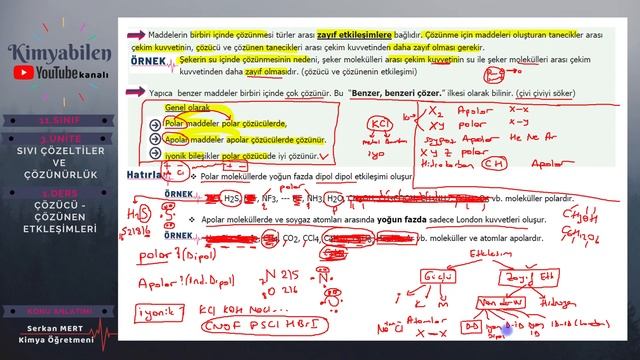 Kimyabilen
YouTube kanalı
11.SINIF
3.ÜNİTE
SIVI ÇÖZELTİLER
VE
ÇÖZÜNÜRLÜK
1.DERS
ÇÖZÜCÜ -
ÇÖZÜNEN
ETKLEŞİMLERİ
KONU ANLATIMI
Serkan MERT
Kimya Öğretmeni
Maddelerin birbiri içinde çözünmesi türler arası zayıf etkileşimlere bağlıdır. Çözünme için maddeleri oluşturan tanecikler arası
çekim kuvvetinin, çözücü ve çözünen tanecikleri arası çekim kuvvetinden daha zayıf olması gerekir.
ÖRNEK Şekerin su içinde çözünmesinin nedeni, şeker molekülleri arası çekim kuvvetinin su ile şeker molekülleri arası çekim
kuvvetinden daha zayıf olmasıdır. (çözücü ve çözünenin etkileşimi)
Yapıca benzer maddeler birbiri içinde çok çözünür. Bu "Benzer, benzeri çözer." ilkesi olarak bilinir. (çivi çiviyi söker)
Genel olarak
Polar maddeler polar çözücülerde,
Apolar maddeler apolar çözücülerde çözünür.
iyonik bileşikler polar çözücüde iyi çözünür.
KCl
Metal
iyo
X2 Apolar X-X
XY polar X-Y
Soygaz Apolar He Ne Ar
XYZ polar
Hidrokarbon CH Apolar
Hatırla
Polar moleküllerde yoğun fazda dipol dipol etkileşimi oluşur.
polar
ÖRNEK H2S, NF3, NH3 H2O, vb. moleküller polardır.
Apolar moleküllerde ve soygaz atomları arasında yoğun fazda sadece London kuvvetleri oluşur.
ÖRNEK CO2, CCl4, vb. moleküller ve atomlar apolardır.
H2S
S
polar? (Dipol)
Apolar? (Ind. Dipol)
iyonik? KCl KOH NaCl...
CNOF PSCl HBrI
7N 2 1 5
8O 2 1 6
N
O
C2H5OH
C6H12O6
Etkileşim
Güçlü
Zayıf Etk
i K M
Van der W
Hidrojen
NaCl
Atomlar
X-X
D-D
iyon Dipol
D-ID
iyon ID
ID-ID (London)